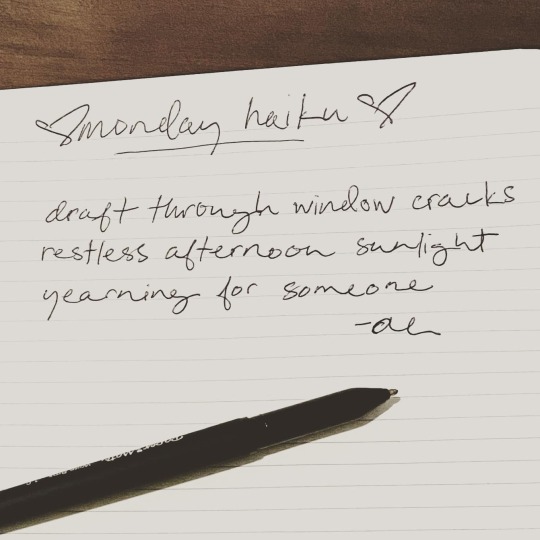 monday haiku
draft through window cracks
restless afternoon sunlight
yearning for someone